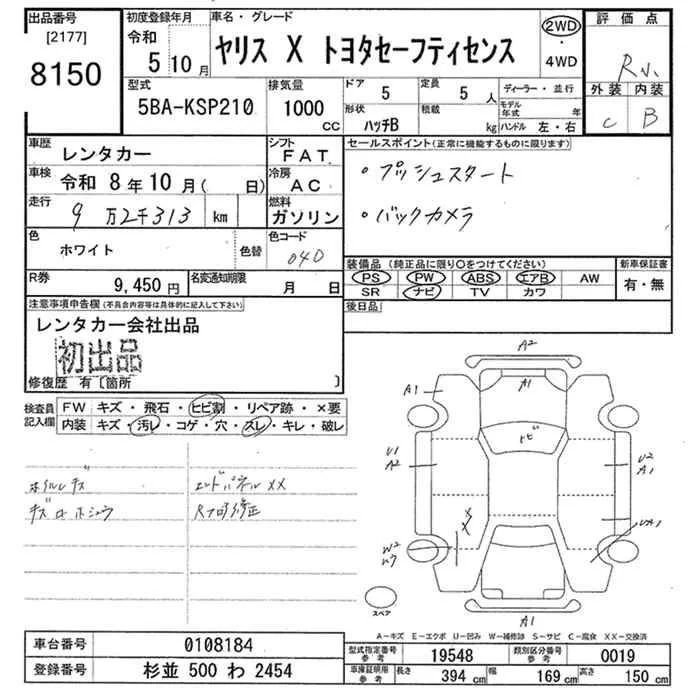 出品番号
[2177]
8150
初度登録年月
令和
5 10月
車名・グレード
ヤリス X トヨタセーフティセンス
2WD
・
4WD
評価点
R
外装 内装
C B
型式
5BA-KSP210
排気量
1000
CC
ドア
5
定員
5 人
形状
ハッチB
積載
kg
ディーラー・並行
モデル年式 年
ハンドル 左・右
車歴
レンタカー
シフト
FAT
車検
令和 8年10月( 日)
冷房
AC
走行
9万2千313 km
燃料
ガソリン
色
ホワイト
色替
色コード
040
R券
9,450円
名変通知期限
月 日
セールスポイント(正常に機能するものに限ります)
・プッシュスタート
・バックカメラ
装備品(純正品に限り○をつけてください)
PS PW ABS エアB AW
SR ナビ TV カワ
新車保証書
有・無
後日品
注意事項申告欄(不具合内容等は具体的に記入して下さい)
レンタカー会社出品
初出品
修復歴 有〔箇所 〕
検査員記入欄
FW キズ・飛石・ヒビ割・リペア跡・×要
内装 キズ・汚レ・コゲ・穴・スレ・キレ・破レ
ホイルキズ
エンドパネルXX
A2
A1
A1
ヒビ
U1
A2
U2
A1
X
X
W2
UA1
A1
スペア
A-キズ E-エクボ U-凹み W-補修跡 S-サビ C-腐食 XX-交換済
車台番号
0108184
登録番号
杉並 500 わ 2454
型式指定番号
参考
19548
類別区分番号
参考
0019
車庫証明用
参考
長さ
394 cm
幅
169 cm
高さ
150 cm